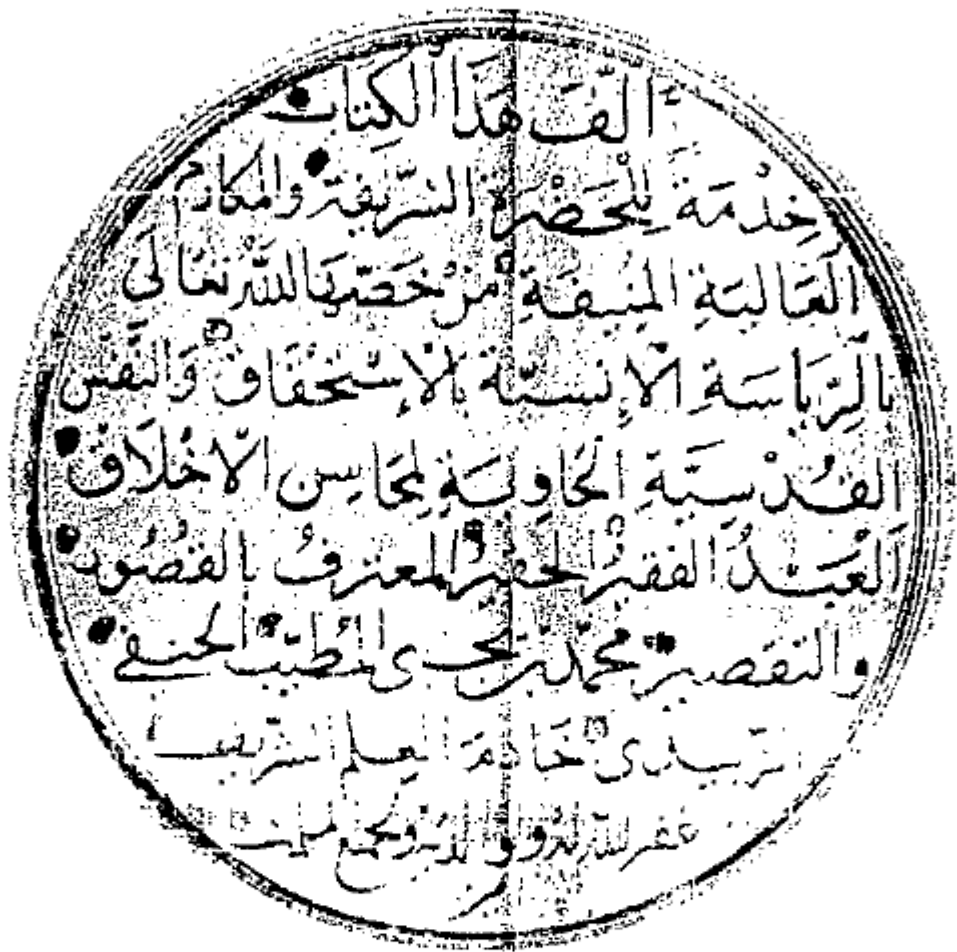 أَلَّفَ هَذَا الْكِتَابَ
خِدْمَةً لِلْحَضْرَةِ الشَّرِيفَةِ وَالمَكَارِمِ
الْعَالِيَةِ المُنِيفَةِ مَنْ خَصَّهَا اللَّهُ تَعَالَى
بِالرِّيَاسَةِ الْإِنْسِيَّةِ بِالْإِسْتِحْقَاقِ وَالنَّفْسِ
القُدْسِيَّةِ الحَاوِيَةِ لِمَحَاسِنِ الْأَخْلَاقِ
الْعَبْدُ الفَقِيرُ الحَقِيرُ المعترفُ بِالقُصُورِ
والتقصير محمد بن يحيى المُطَيِّب الحنفي
الزبيدي خَادِمَ العِلم الشَّرِيف
غفر الله له ولوالديه ولجميع المسلمين